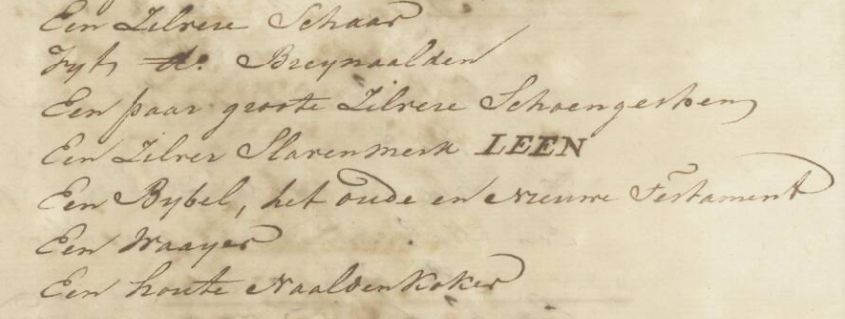 Een Zilvere Schaar
Vyf do. Breynaalden
Een paar groote Zilvere Schoengespen
Een Zilver Slavenmerk LEEN
Een Bybel, het oude en Nieuwe Testament
Een Waayer
Een houte Naaldenkoker